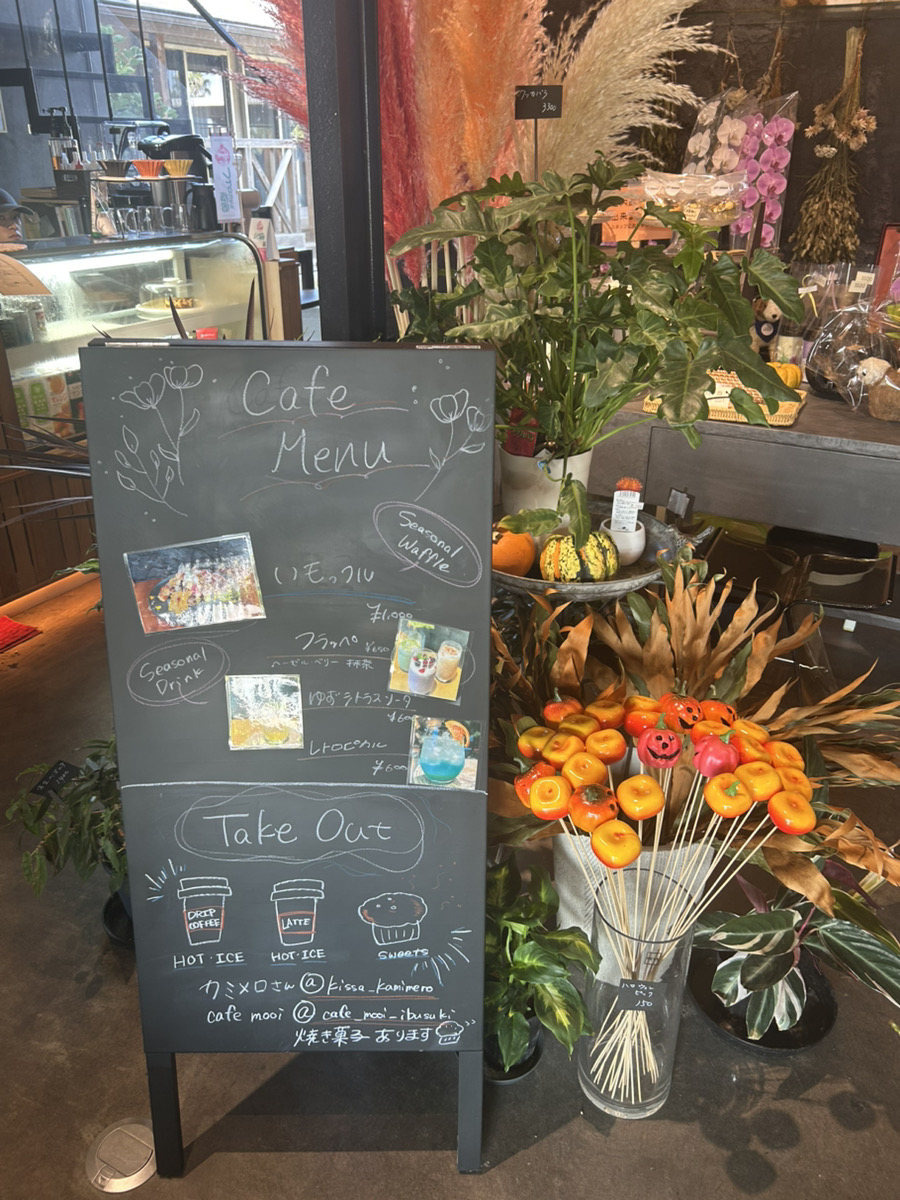 3300
Cafe
Menu
Seasonal
Waffle
いモッフル
¥1,000
フラッペ ¥650
ヘーゼル・ベリー 抹茶
Seasonal
Drink
ゆずシトラスソーダ
¥60
レトロピカル
¥600
Take Out
DRIP
COFFEE
LATTE
HOT・ICE
HOT・ICE
SWEETS
カミメロさん @kissa_kamimero
cafe mooi @cafe_mooi_ibusuki
焼き菓子 あります
ハロウィン
ピック
150